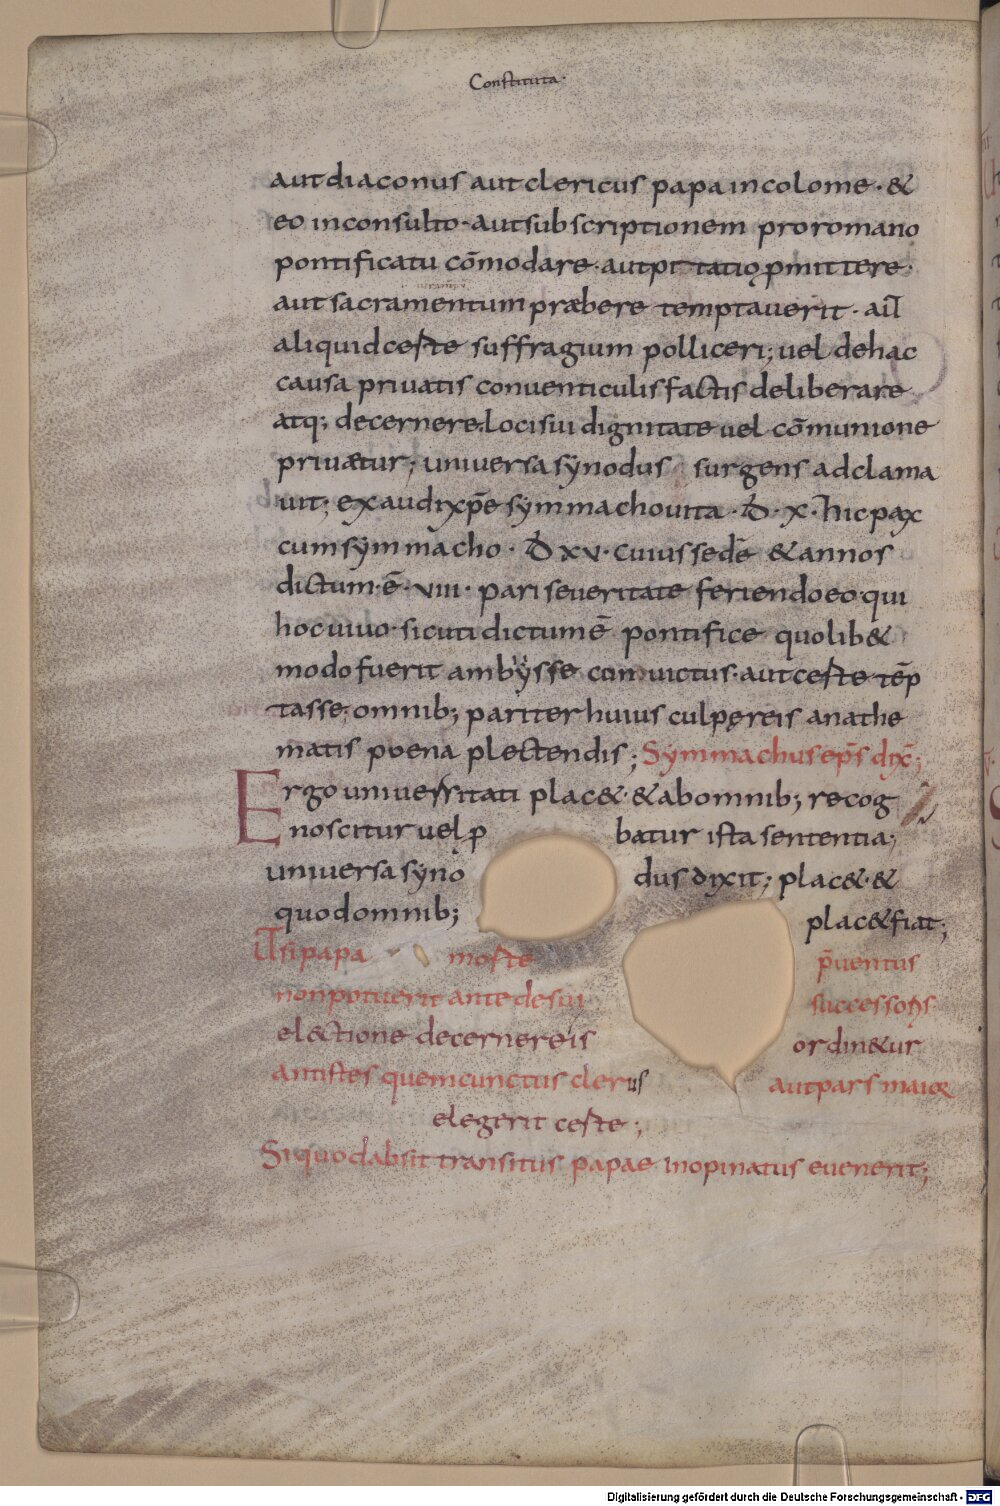 Constituta·
aut diaconus aut clericus papa incolome· &
eo inconsulto· aut subscriptionem pro romano
pontificatu cōmodare· aut pitatiǫ pmittere·
aut sacramentum præbere temptauerit· aīl
aliquid certe suffragium polliceri; uel de hac
causa priuatis conuenticulis factis deliberare
atq; decernere. Loci sui dignitate uel cōmunione
priuætur; uniuersa synodus surgens adclama
uit; exaudi xp̄e symmacho uita· D̄· x· hic pax
cum symmacho· D̄ xv· cuius sedē & annos
dictum· ē· viii· pari seueritate feriendo eo qui
hoc uiuo· sicuti dictum ē pontifice quolib&
modo fuerit ambysse conuictus· aut certe tēp
tasse; omnib; pariter huius culpę reis anathe
matis poena plectendis; Symmachus ep̄s dix̄;
Ergo uniuersitati plac&· & ab omnib; recog
noscitur uel p batur ista sententia;
uniuersa syno dus dixit; plac&· &
quod omnib; plac& fiat;
Ut si papa morte p̄uentus
non potuerit ante de sui successoris
el&ctione decernere is ordin&ur
antistes quem cunctus clerus aut pars maior
elegerit certe;
Si quod absit transitus papae inopinatus euenerit;
Digitalisierung gefördert durch die Deutsche Forschungsgemeinschaft - DFG